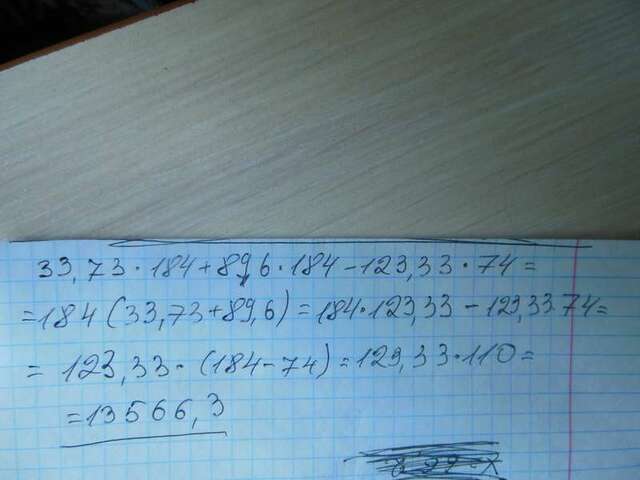 33,73·184+89,6·184-123,33·74=
=184(33,73+89,6)=184·123,33-123,33·74=
=123,33·(184-74)=123,33·110=
=13566,3